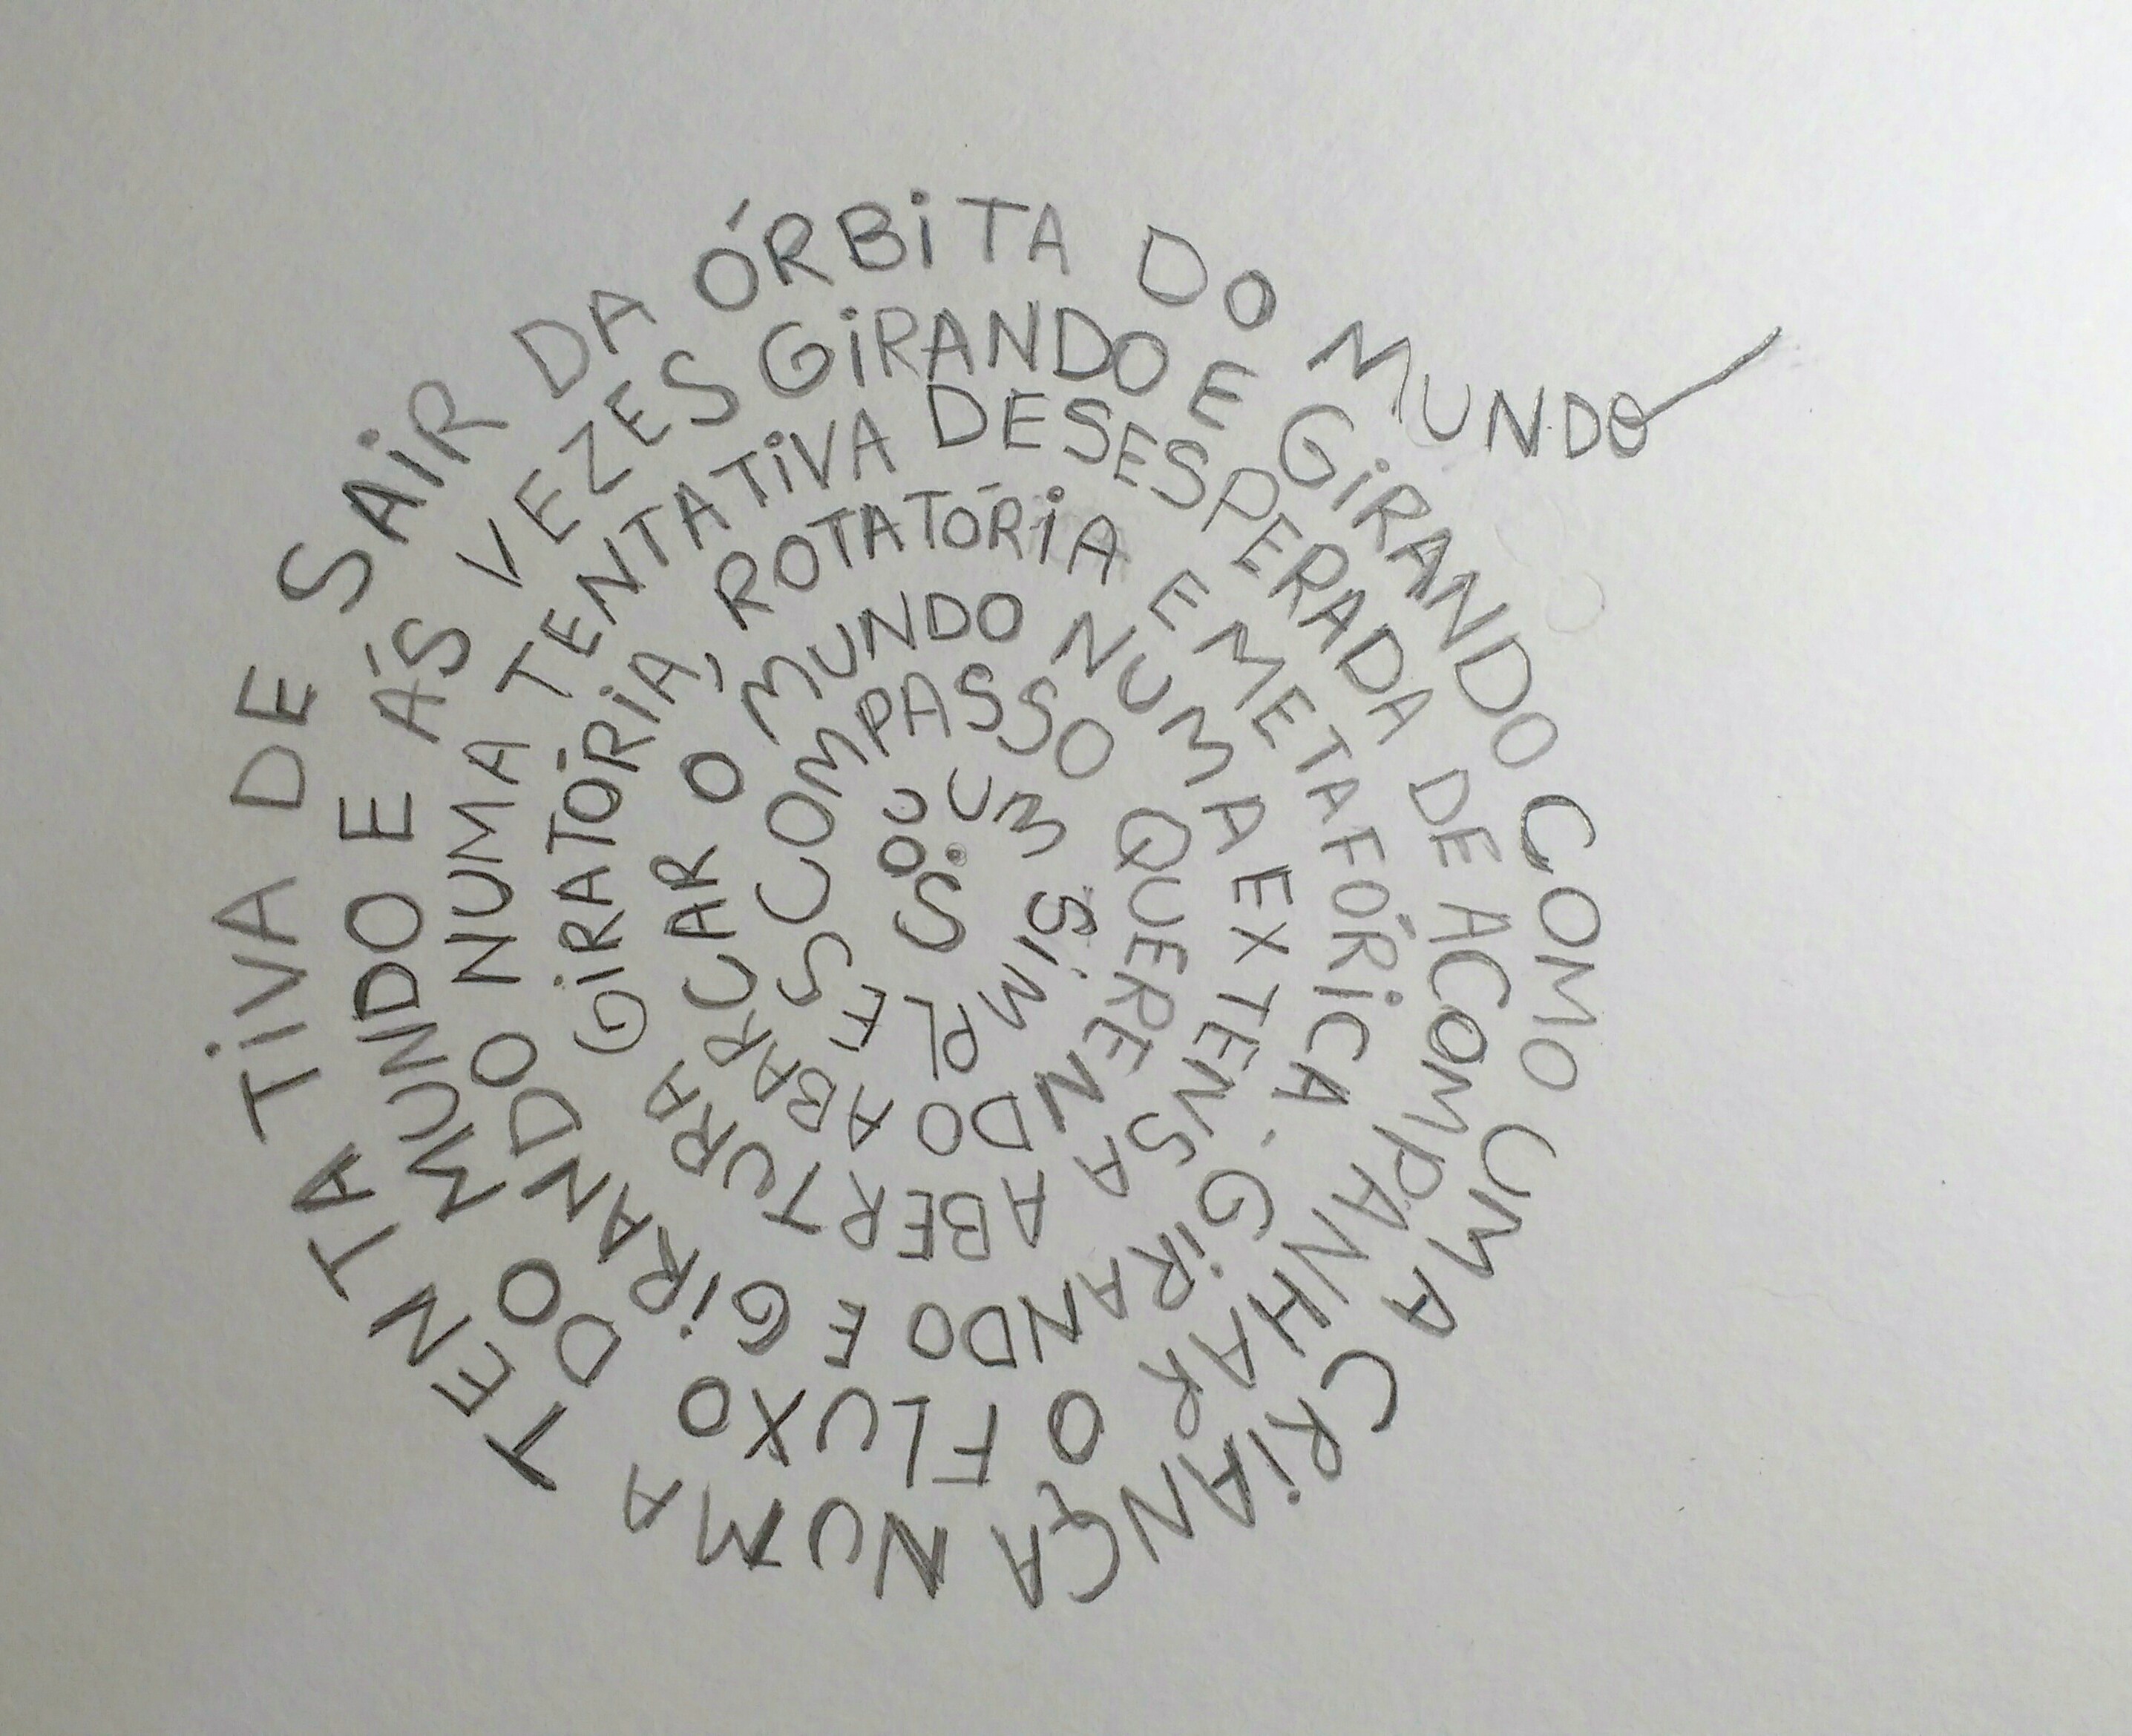 SOU UM SIMPLES COMPASSO QUERENDO ABARCAR O MUNDO NUMA EXTENSA ABERTURA GIRATÓRIA, ROTATÓRIA E METAFÓRICA. GIRANDO E GIRANDO NUMA TENTATIVA DESESPERADA DE ACOMPANHAR O FLUXO DO MUNDO E ÁS VEZES GIRANDO E GIRANDO COMO UMA CRIANÇA NUMA TENTATIVA DE SAIR DA ÓRBITA DO MUNDO